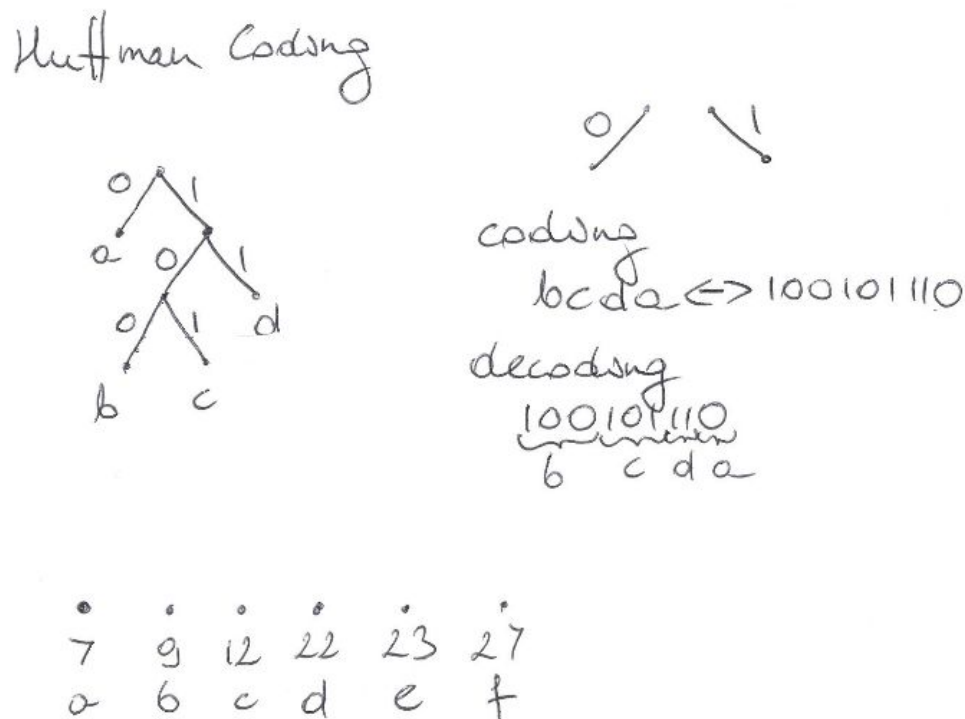 Huffman Coding
0 1
0 1
a 0 1
0 1 d
b c
coding
bcda <-> 100101110
decoding
100101110
b c d a
7 9 12 22 23 27
a b c d e f